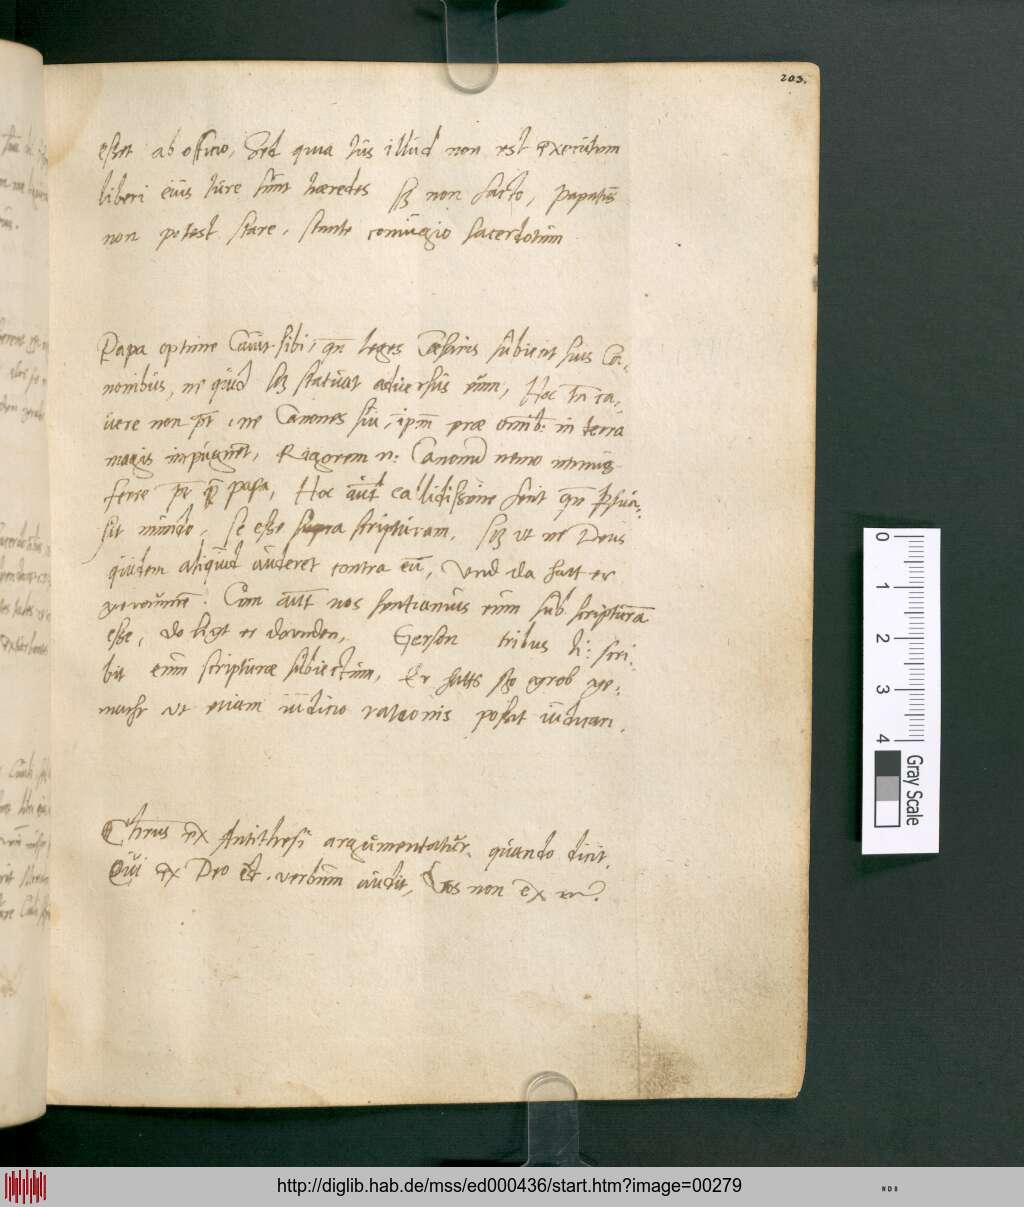 203.
esset ab officio, Sed quia ius illud non est executum
liberi eius iure sunt haeredes sz non facto, papatus
non potest stare, stante coniugio sacerdotum
Papa optime cauit sibi, qn leges Caesaris subiecit suis Ca-
nonibus, ne quid sz statuat aduersus eum, Hoc tn ca-
uere non pt, ne Canones sui, ipm prae omnib: in terra
magis impugnet, Rigorem n: Canonum nemo minus
ferre pt quam papa, Hoc aut callidissime fecit qn psua-
sit mundo, se esse supra scripturam, sz vt ne Deus
quidem aliquid auderet contra eu, Vnd da hatt er
gewunnen. Cum autt nos sentiamus eum sub scriptura
esse, do ligt er dounden, Gerson tribus li: scri-
bit eum scripturae subiectum, Er hatts szo grob ge-
macht vt etiam iudicio rationis possit iudicari.
Christus ex Antithesi argumentatur, quando dicit,
Qui ex Deo est, verbum audit, Vos non ex
0 1 2 3 4
Gray Scale
http://diglib.hab.de/mss/ed000436/start.htm?image=00279